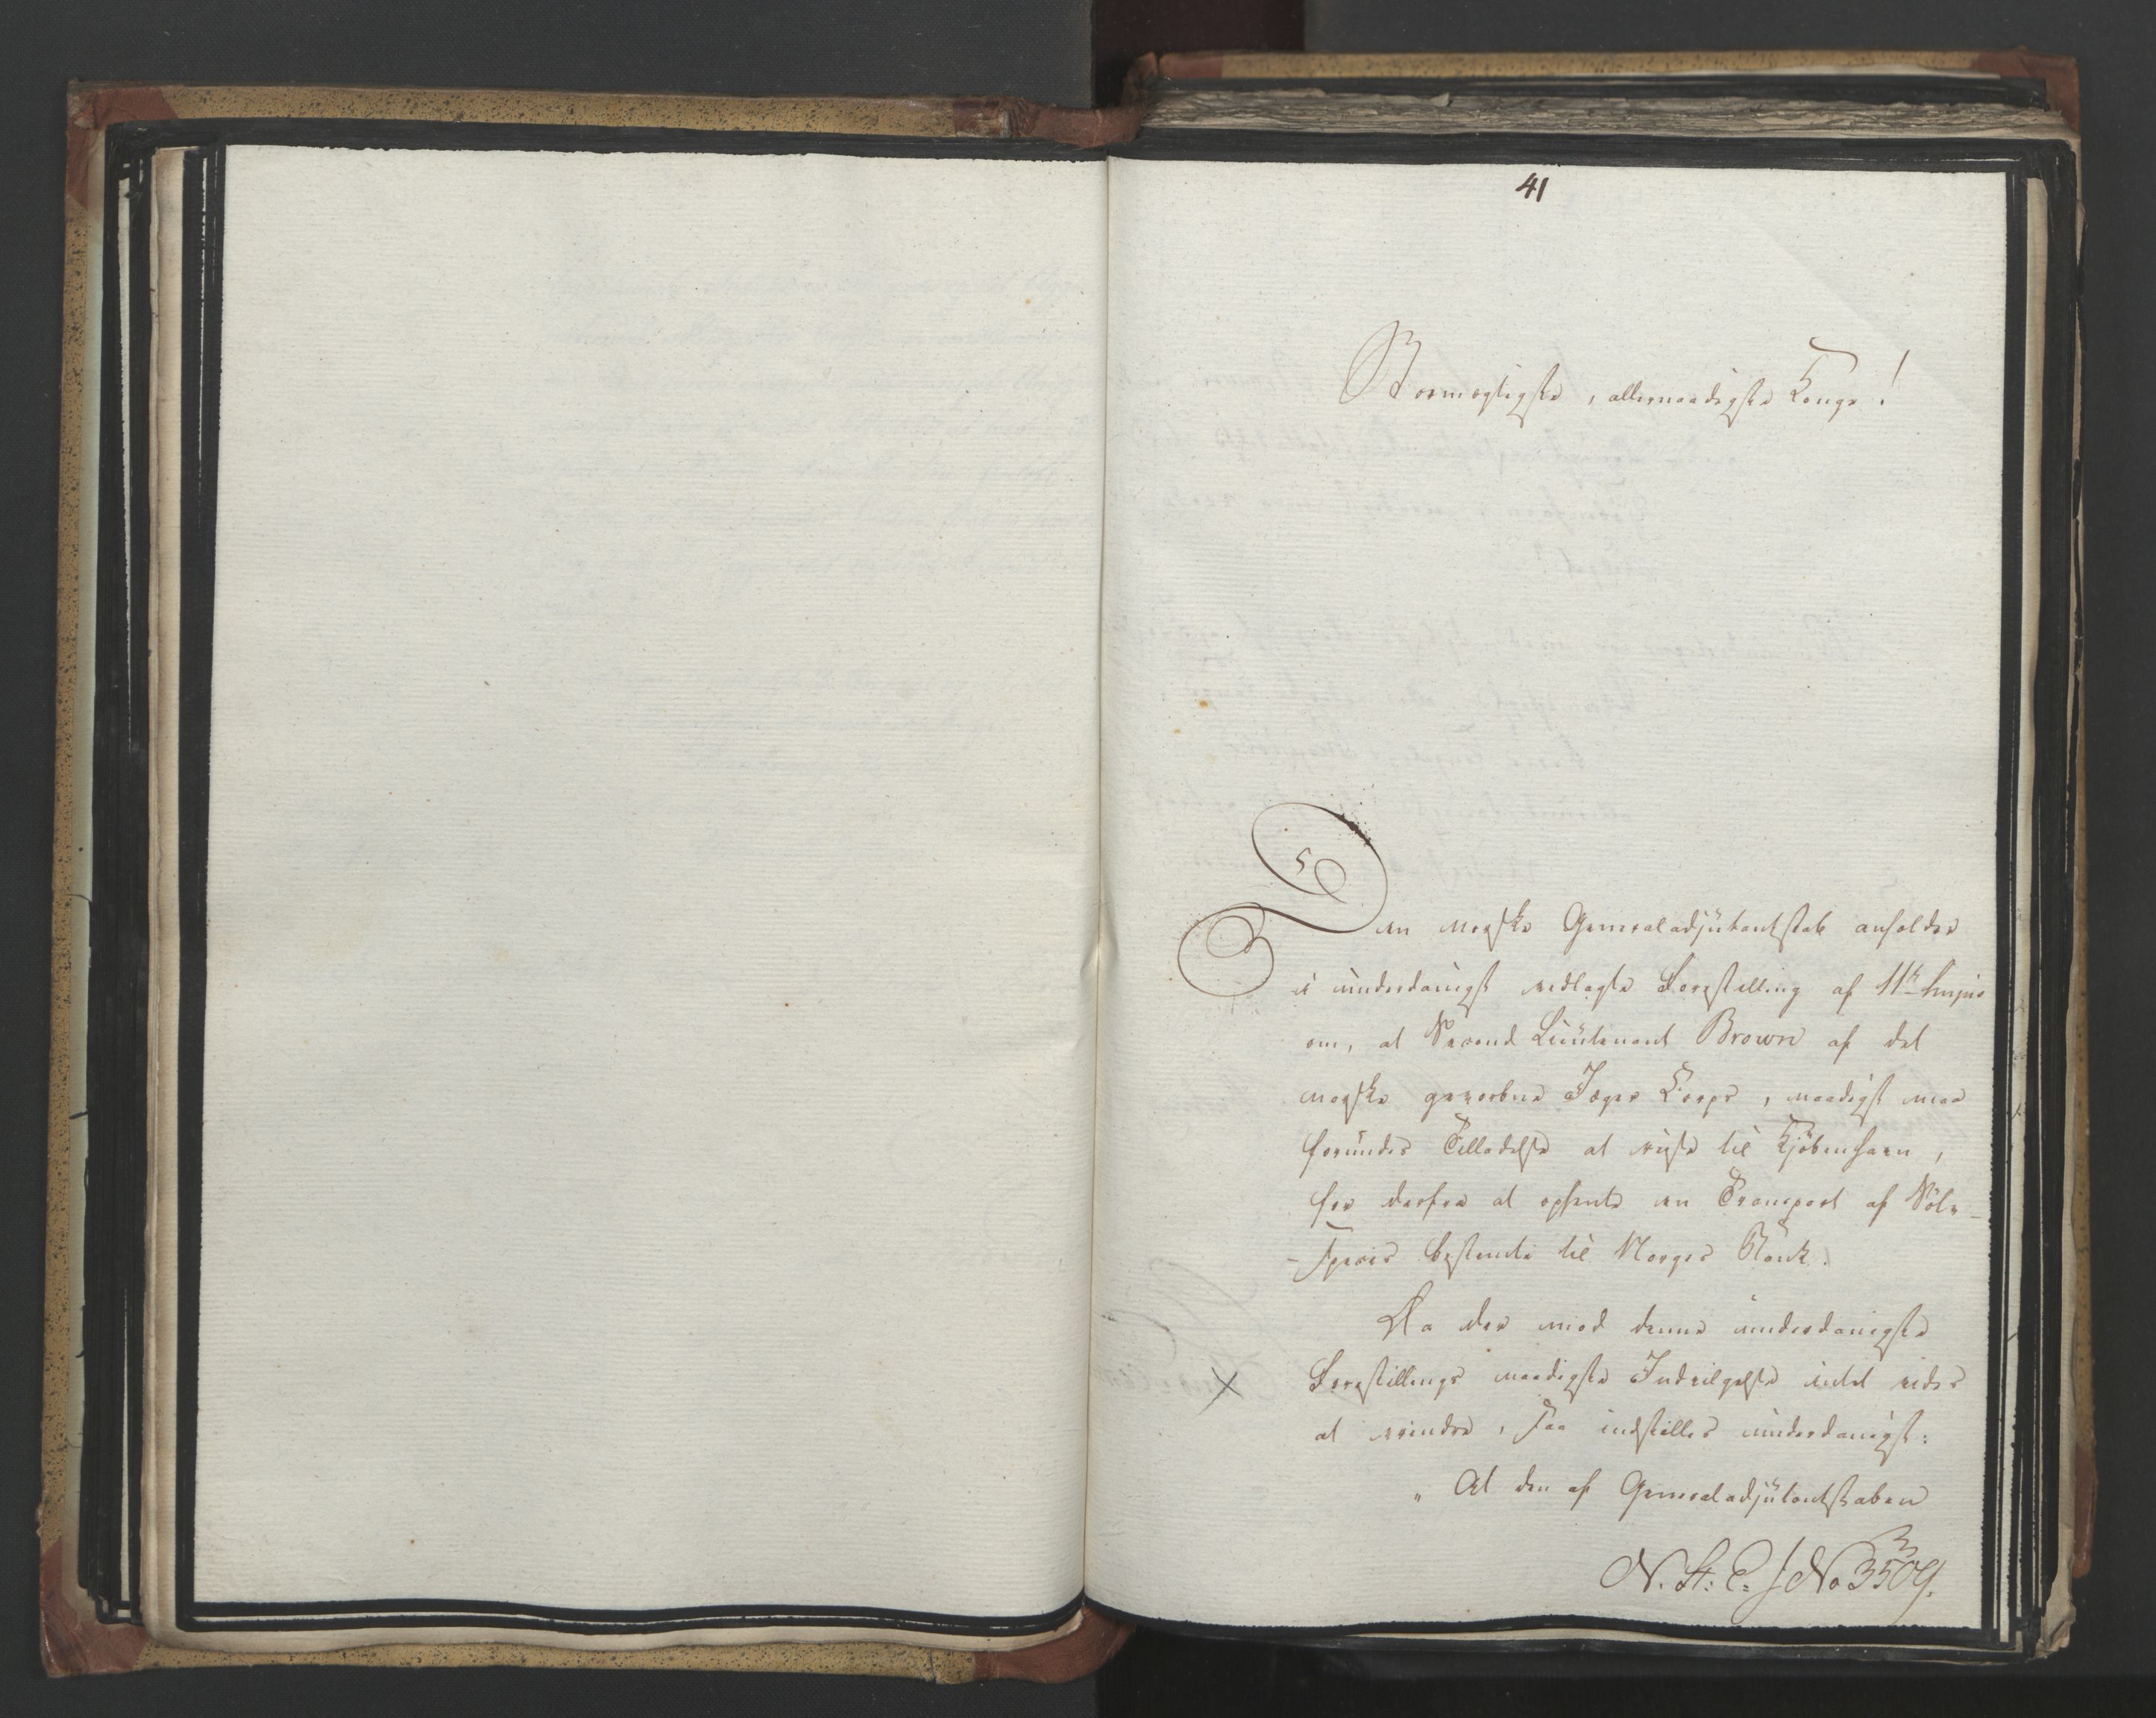 41
Stormægtigste, allernaadigste Konge!
Den norske Generaladjütantstab anholder
i ünderdanigst vedlagte Forestilling af 11te hujus
om, at Second Lieütenant Brown af det
norske geworbne Jæger Corps, naadigst maa
foründes Tilladelse at reise til Kjöbenhavn,
for derfra at afhente en Transport af Sölv-
-Specier bestemte til Norges Bank.
Da der mod denne ünderdanigste
Forestillings naadigste Indvilgelse intet vides
at erindre, saa indstilles ünderdanigst:
„At den af Generaladjütantstaben
N. St: C. J No 3509.